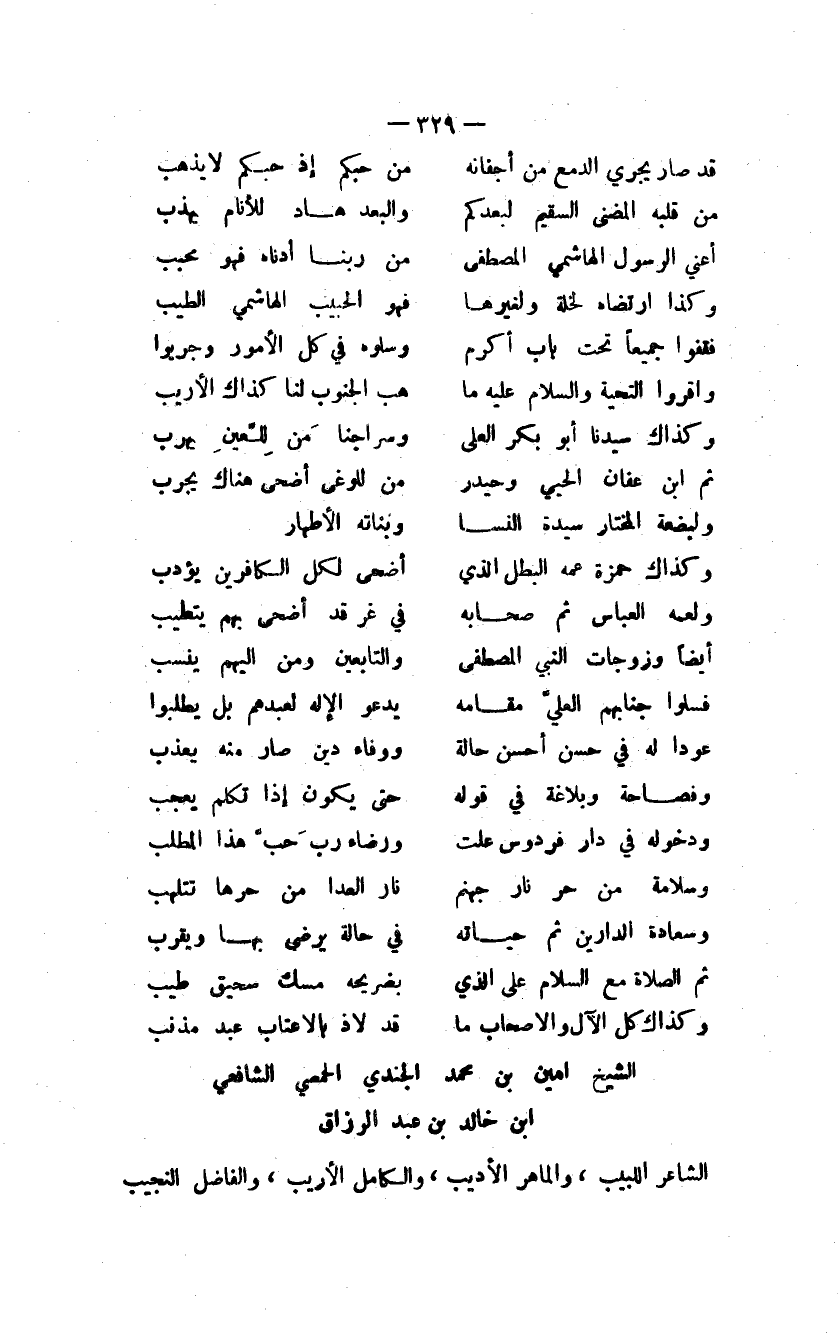 — ٣٢٩ —
قد صار يجري الدمع من أجفانه من حبكم إذ حبكم لا يذهب
من قلبه المضنى السقيم لبعدكم والبعد هاد للأنام يهذب
أعني الرسول الهاشمي المصطفى من ربنا أدناه فهو محبب
وكذا ارتضاه لخلة ولغيرها فهو الحبيب الهاشمي الطيب
فقفوا جميعاً تحت باب أكرم وسلوه في كل الأمور وجربوا
واقروا التحية والسلام عليه ما هب الجنوب لنا كذاك الأريب
وكذاك سيدنا أبو بكر العلى وسراجنا مَن لِلَّعينِ يهرب
ثم ابن عفان الحيي وحيدر من للوغى أضحى هناك يجرب
ولبضعة المختار سيدة النسا وبناته الأطهار
وكذاك حمزة عمه البطل الذي أضحى لكل الكافرين يؤدب
ولعمه العباس ثم صحابه في غر قد أضحى بهم يتطيب
أيضاً وزوجات النبي المصطفى والتابعين ومن اليهم ينسب
فسلوا جنابهم العليَّ مقامه يدعو الإله لعبدهم بل يطلبوا
عودا له في حسن أحسن حالة ووفاء دين صار منه يعذب
وفصاحة وبلاغة في قوله حتى يكون إذا تكلم يعجب
ودخوله في دار فردوس علت ورضاء رب حَبَّ هذا المطلب
وسلامة من حر نار جهنم نار العدا من حرها تتلهب
وسعادة الدارين ثم حياته في حالة يرضى بها ويقرب
ثم الصلاة مع السلام على الذي بضريحه مسك سحيق طيب
وكذاك كل الآل والاصحاب ما قد لاذ بالاعتاب عبد مذنب
الشيخ امين بن محمد الجندي الحمصي الشافعي
ابن خالد بن عبد الرزاق
الشاعر اللبيب ، والماهر الأديب ، والكامل الأريب ، والفاضل النجيب